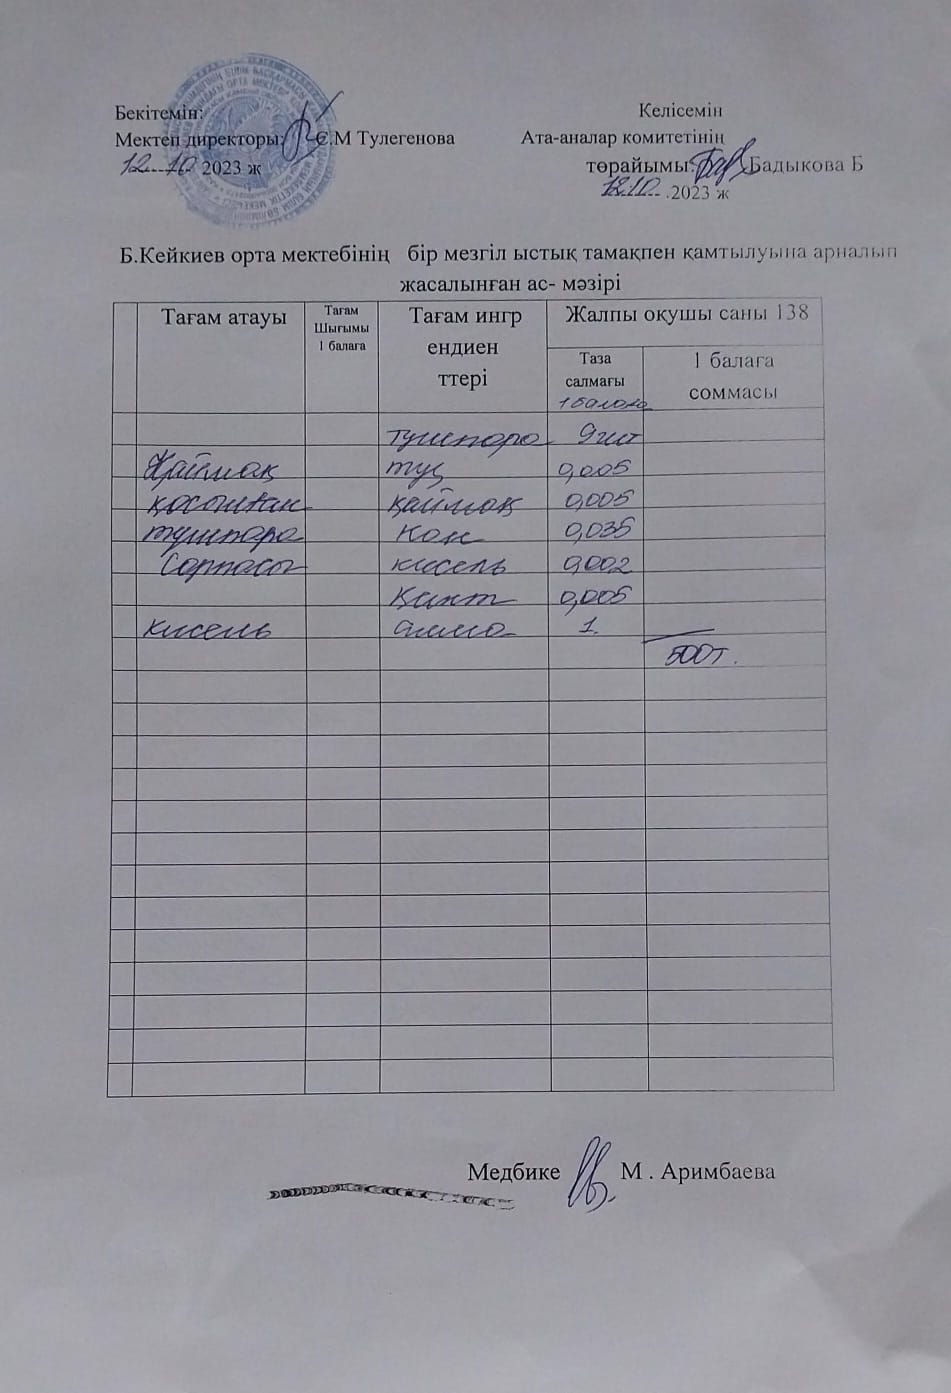 Бекітемін: Келісемін
Мектеп директоры: С.М Тулегенова Ата-аналар комитетінің
12.10 2023 ж төрайымы: Бадыкова Б
12.10 .2023 ж
Б.Кейкиев орта мектебінің бір мезгіл ыстық тамақпен қамтылуына арналып
жасалынған ас- мәзірі
Тағам атауы Тағам Шығымы 1 балаға Тағам ингр ендиен ттері Жалпы оқушы саны 138
Таза салмағы 1 балаға 1 балаға соммасы
тушпара 9шт
Қаймақ тұз 0,005
қосылған қаймақ 0,005
тушпара нан 0,035
Сорпасы кисель 0,002
Қант 0,005
кисель алма 1.
500т.
Медбике М . Аримбаева